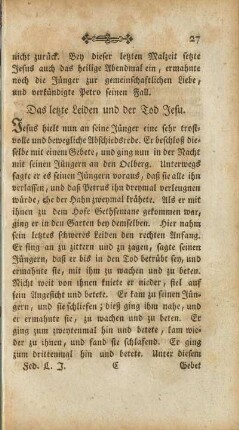 27
nicht zurück. Bey dieser letzten Malzeit setzte
Jesus auch das heilige Abendmal ein, ermahnte
noch die Jünger zur gemeinschaftlichen Liebe,
und verkündigte Petro seinen Fall.
Das letzte Leiden und der Tod Jesu.
Jesus hielt nun an seine Jünger eine sehr trost-
volle und bewegliche Abschiedsrede. Er beschloß die-
selbe mit einem Gebete, und ging nun in der Nacht
mit seinen Jüngern an den Oelberg. Unterwegs
sagte er es seinen Jüngern voraus, daß sie alle ihn
verlassen, und daß Petrus ihn dreymal verleugnen
würde, ehe der Hahn zweymal krähete. Als er mit
ihnen zu dem Hofe Gethsemane gekommen war,
ging er in den Garten bey demselben. Hier nahm
sein letztes schweres Leiden den rechten Anfang.
Er fing an zu zittern und zu zagen, sagte seinen
Jüngern, daß er bis in den Tod betrübt sey, und
ermahnte sie, mit ihm zu wachen und zu beten.
Nicht weit von ihnen kniete er nieder, fiel auf
sein Angesicht und betete. Er kam zu seinen Jün-
gern, und sie schliefen; dieß ging ihm nahe, und
er ermahnte sie, zu wachen und zu beten. Er
ging zum zweytenmal hin und betete, kam wie-
der zu ihnen, und fand sie schlafend. Er ging
zum drittenmal hin und betete. Unter diesem
Fed. L. J. C Gebet